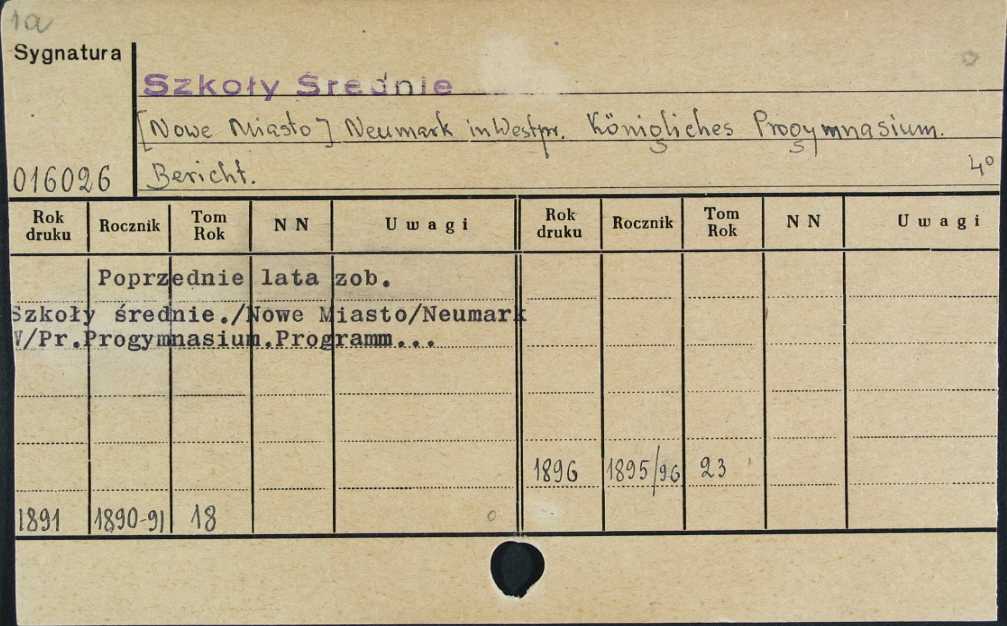 1a
Sygnatura
Szkoły Średnie
[Nowe Miasto] Neumark in Westpr. Königliches Progymnasium.
016026 Bericht. 4°
Rok druku Rocznik Tom Rok N N Uwagi Rok druku Rocznik Tom Rok N N Uwagi
Poprzednie lata zob.
Szkoły średnie./Nowe Miasto/Neumark
W/Pr.Progymnasium.Programm...
1896 1895/96 23
1891 1890-91 18